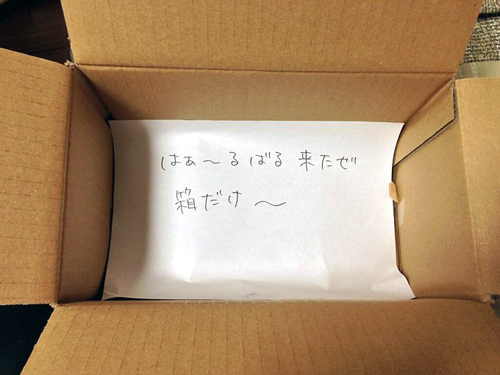 はぁ～るばる 来たぜ
箱だけ ～